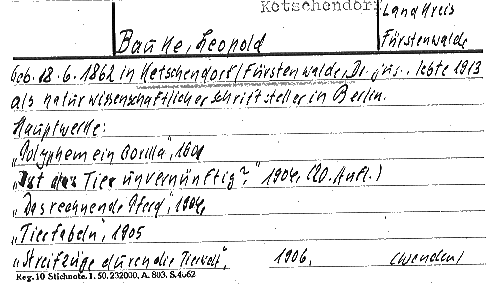 Ketschendorf
Landkreis
Fürstenwalde
Bauke, Leopold
geb. 18.6.1862 in Ketschendorf/Fürstenwalde, Dr. jur., lebte 1913
als naturwissenschaftlicher Schriftsteller in Berlin.
Hauptwerke:
„Polyphem ein Gorilla", 1601
„Ist das Tier unvernünftig?", 1904, (20. Aufl.)
„Das rechnende Pferd", 1904,
„Tierfabeln", 1905
„Streifzüge durch die Tierwelt", 1906, (wenden)
Reg. 10 Stichnote. 1. 50. 232000. A. 803. S. 4062